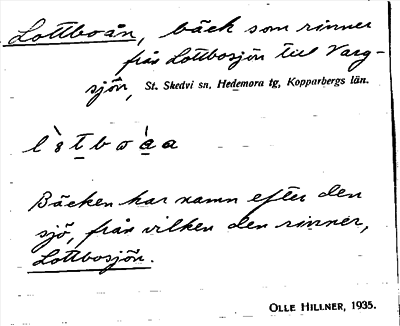 Lottboån, bäck som rinner
från Lottbosjön till Varg-
sjön, St. Skedvi sn, Hedemora tg, Kopparbergs län.
Bäcken har namn efter den
sjö, från vilken den rinner,
Lottbosjön.
OLLE HILLNER, 1935.